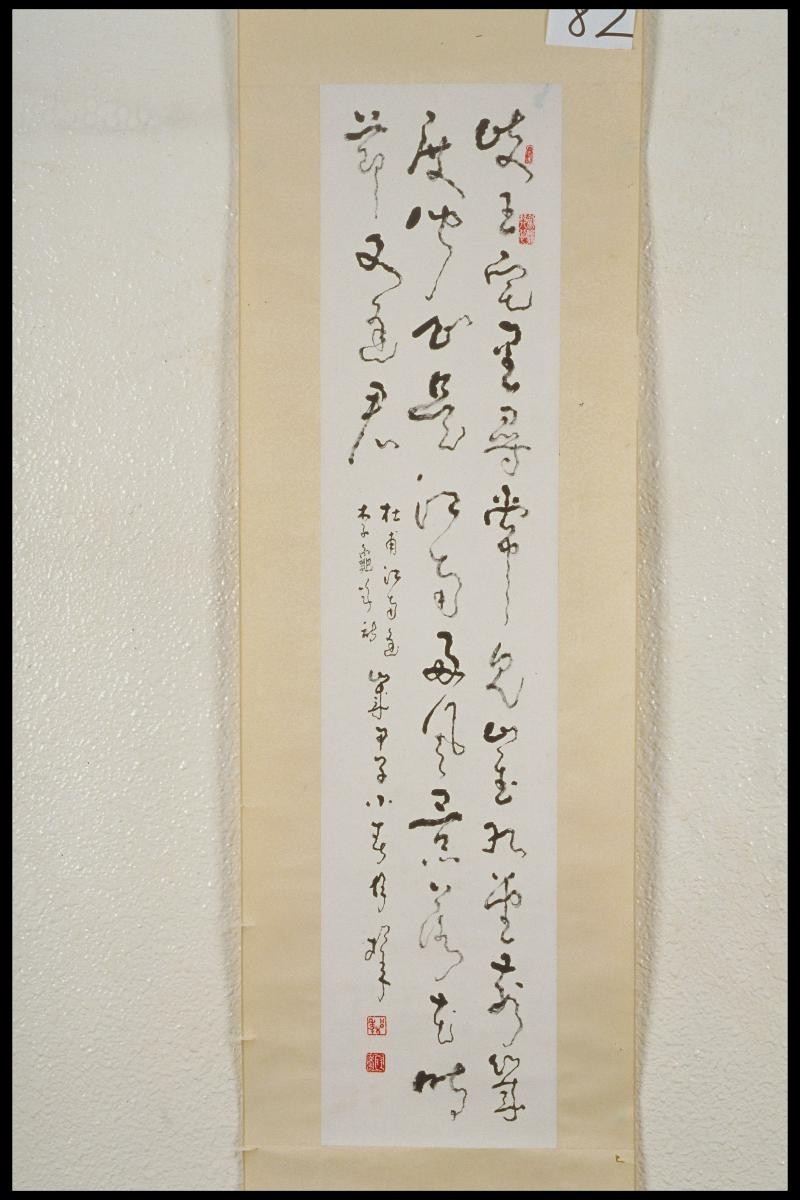 82
岐王宅里尋常見崔九堂前幾
度聞正是江南好風景落花時
節又逢君
杜甫江南逢
李龜年詩
歲甲子小春月